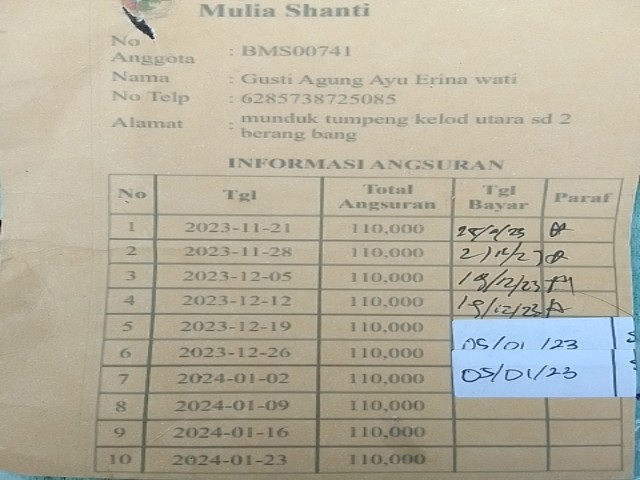 Mulia Shanti
No Anggota : BMS00741
Nama : Gusti Agung Ayu Erina wati
No Telp : 6285738725085
Alamat : munduk tumpeng kelod utara sd 2
berang bang
INFORMASI ANGSURAN
No Tgl Total Angsuran Tgl Bayar Paraf
1 2023-11-21 110,000
2 2023-11-28 110,000
3 2023-12-05 110,000 19/12/23
4 2023-12-12 110,000 19/12/23
5 2023-12-19 110,000 05/01/23
6 2023-12-26 110,000
7 2024-01-02 110,000 05/01/23
8 2024-01-09 110,000
9 2024-01-16 110,000
10 2024-01-23 110,000